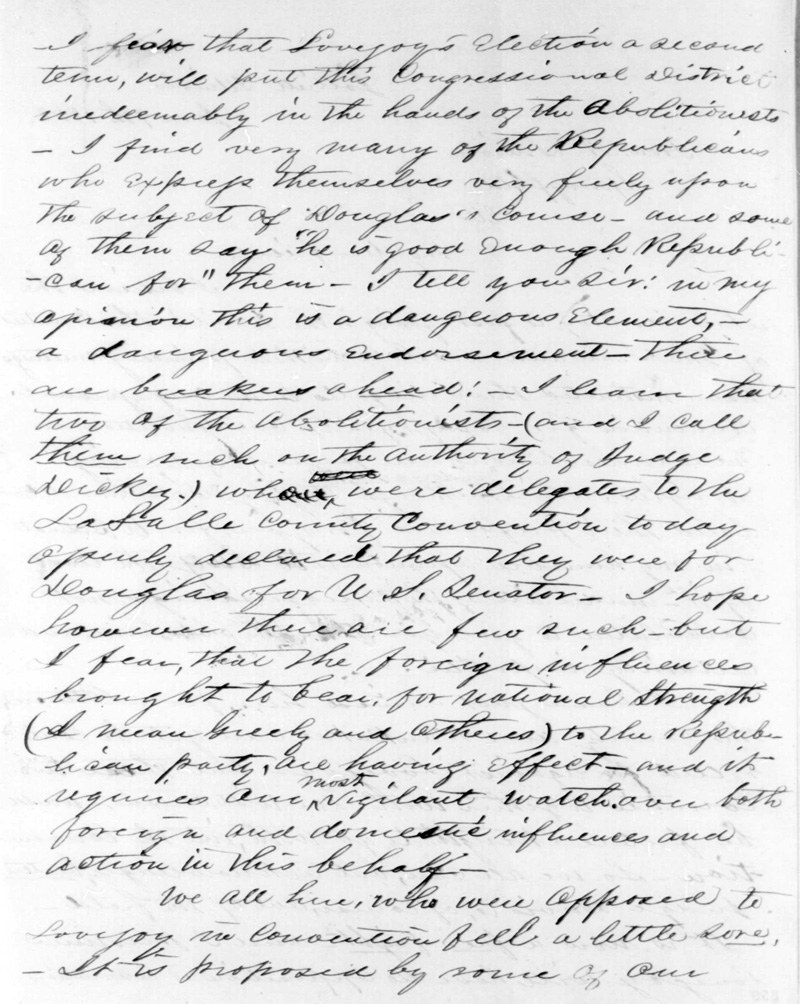 - I fear that Lovejoy's Election a second
term, will put this Congressional District
irredeemably in the hands of the Abolitionists
- I find very many of the Republicans
who express themselves very freely upon
the subject of Douglas's course - and some
of them say "he is good Enough Republi-
-can for" them - I tell you Sir! in my
opinion this is a dangerous Element, -
a dangerous Endorsement - there
are breakers ahead! - I learn that
two of the Abolitionists - (and I call
them such on the authority of Judge
Dickey.) who were delegates to the
LaSalle County Convention today
openly declared that they were for
Douglas for U. S. Senator - I hope
however there are few such - but
I fear, that the foreign influences
brought to bear, for National Strength
(I mean Greely and Others) to the Repub-
lican party, are having Effect - and it
requires our most Vigilant watch over both
foreign and domestic influences and
action in this behalf -
We all here, who were Opposed to
Lovejoy in Convention fell a little sore,
- It is proposed by some of our